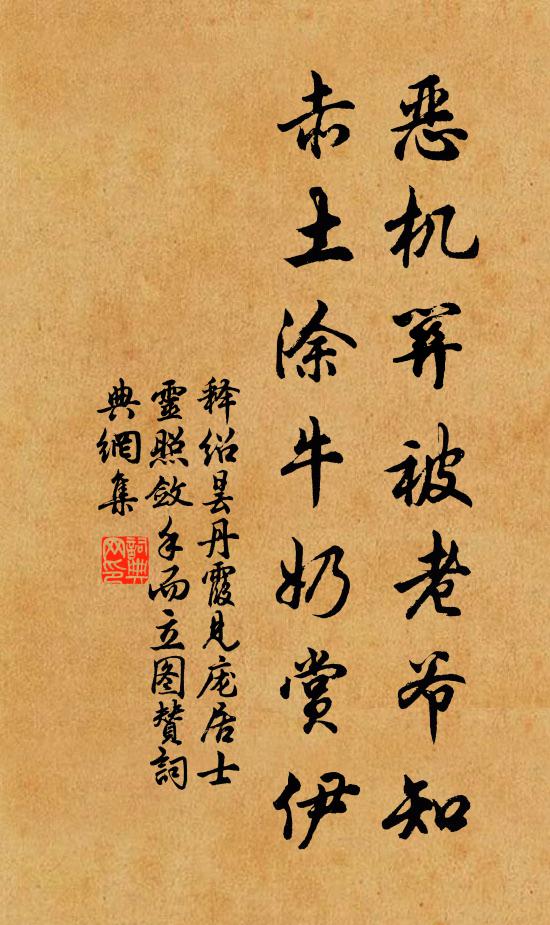 恶机筭被老爷知
赤土涂牛奶赏伊
释绍昙丹霞见庞居士
靈照敛手而立图赞詞
典網集
詞典
网印